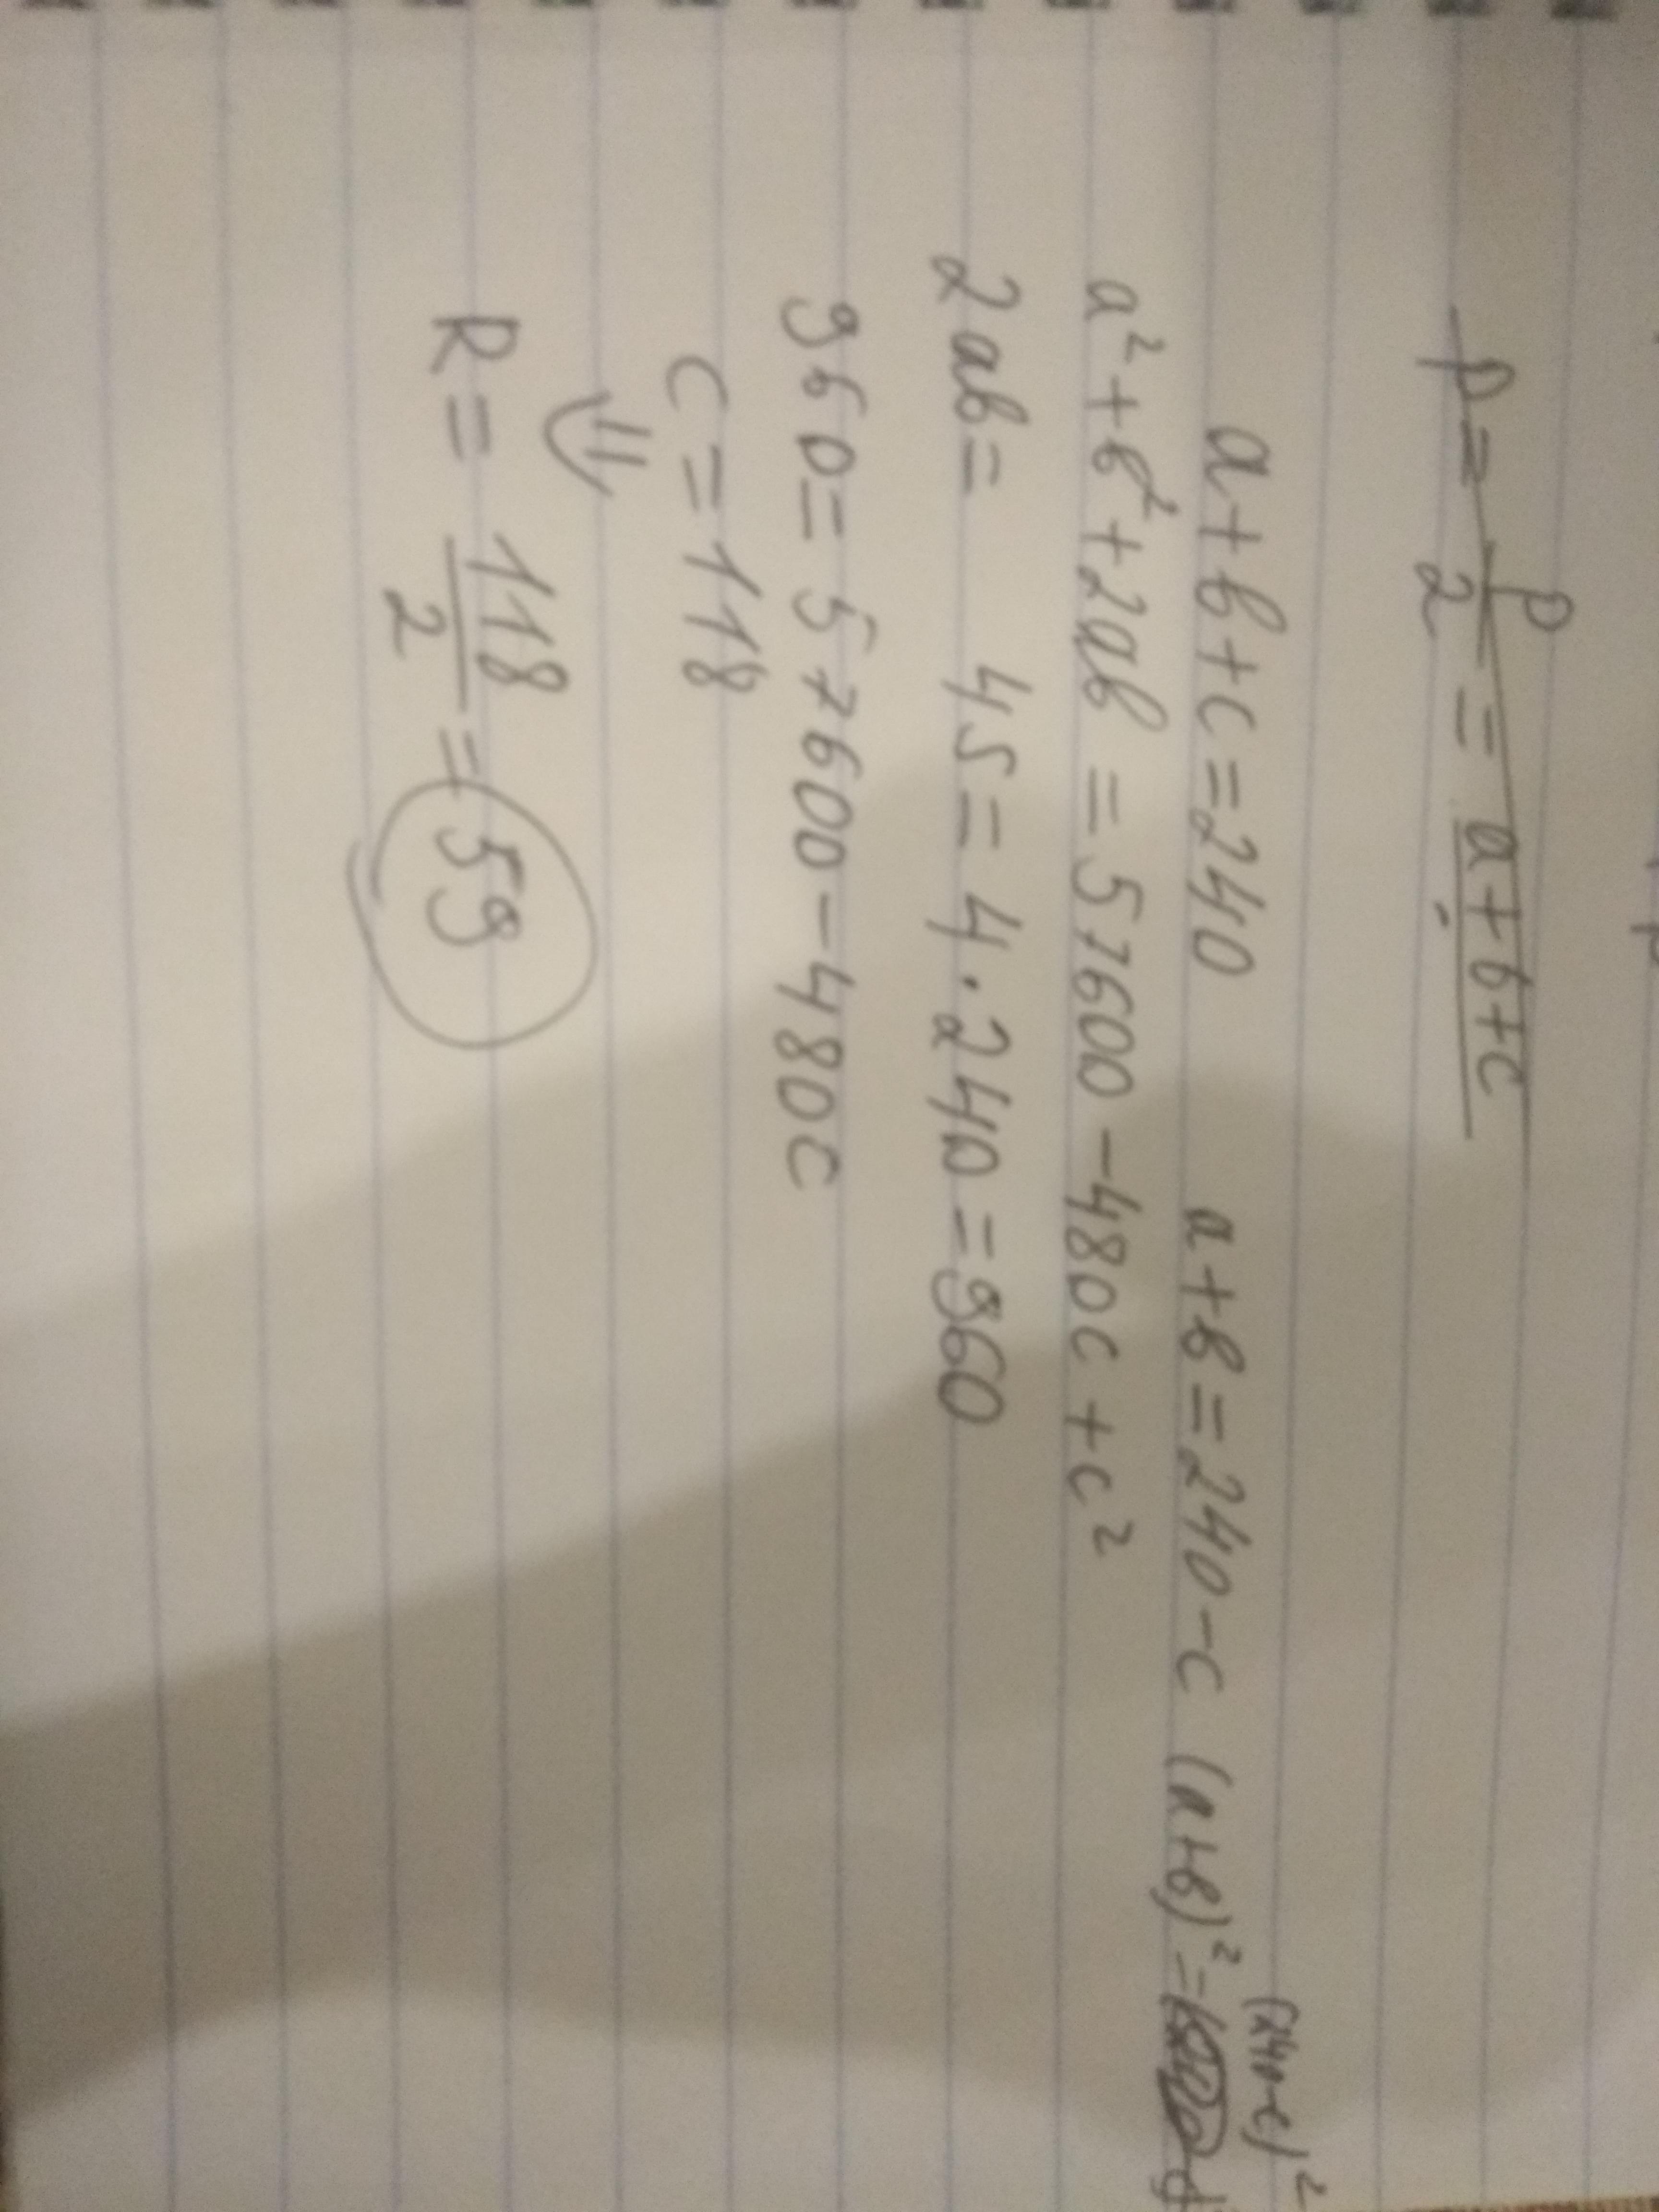 p = P/2 = a+b+c
a+b+c=240 a+b=240-c (a+b)²= (240-c)²
a²+b²+2ab = 57600-480c+c²
2ab= 4S=4·240=960
960=57600-480c
c=118
⇓
R=118/2=59